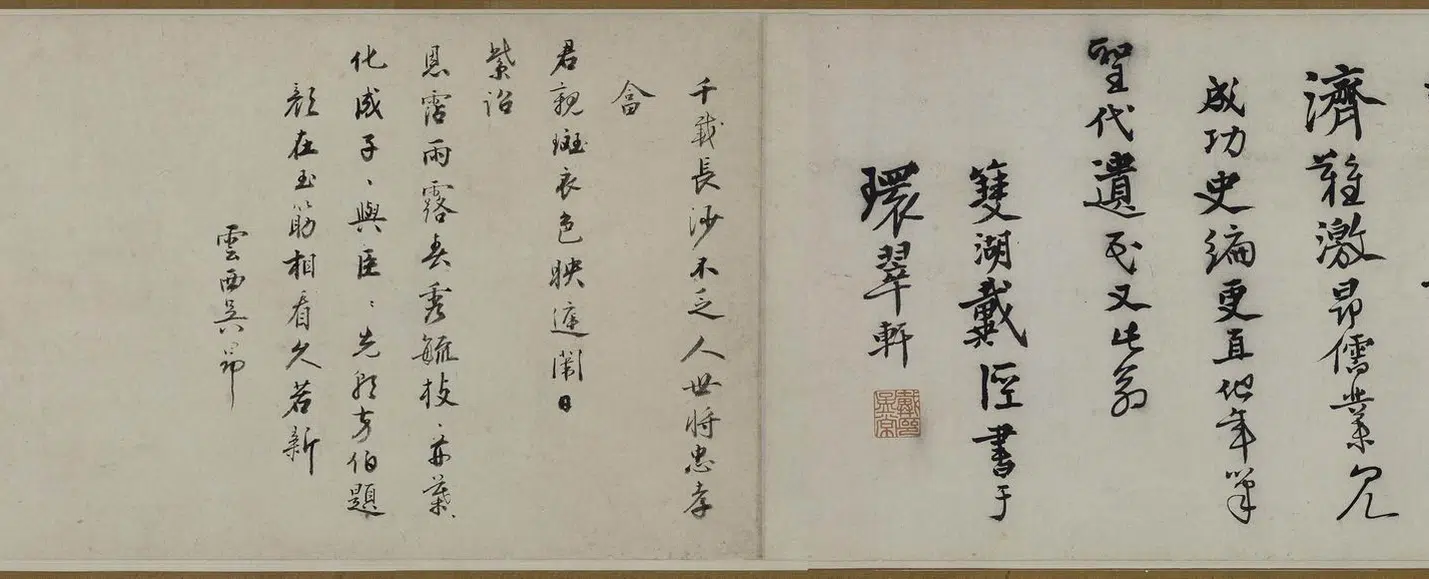 濟難激昂儒業見
成功史編更直他年筆
聖代遺民又此翁
雙湖戴經書于
環翠軒
千載長沙不乏人世將忠孝
畣
君親斑衣色映連闈日
紫詔
恩霑雨露春秀毓枝〻并葉〻
化成子〻與臣〻先朝方伯題
顏在玉筋相看久若新
雲西吳昂